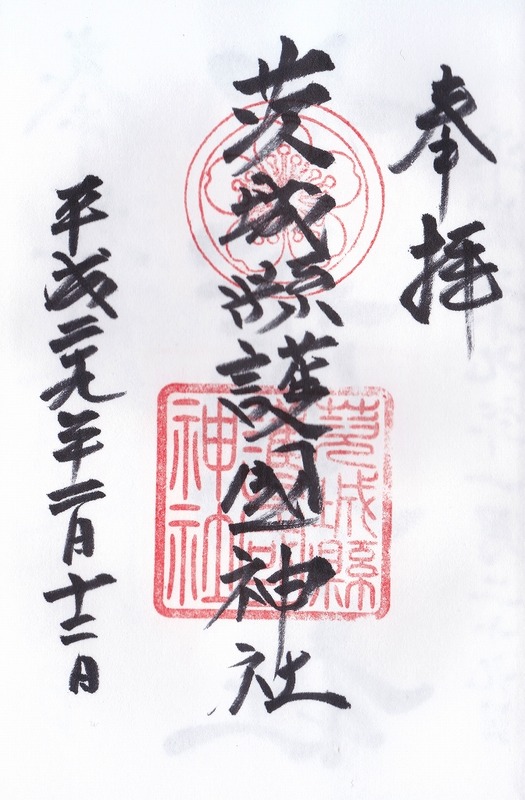 奉拝
茨城縣護國神社
平成二九年二月十二日
茨城縣
護國
神社